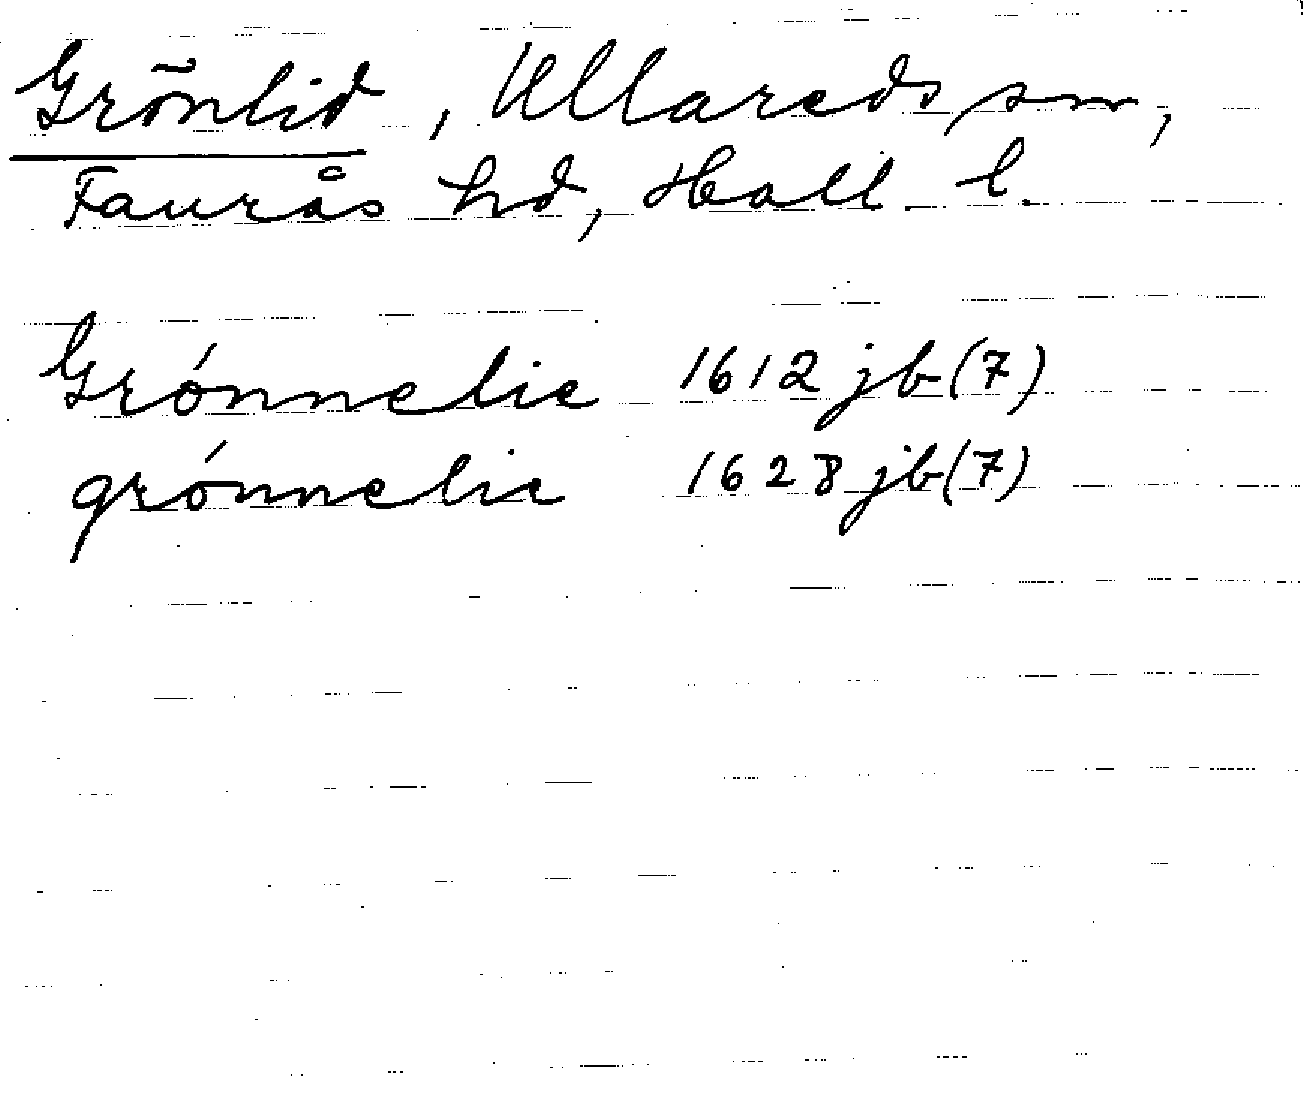 Grönlid, Ullareds sn,
Faurås hd, Hall. l.
Grónnelie 1612 jb(7)
grónnelie 1628 jb(7)